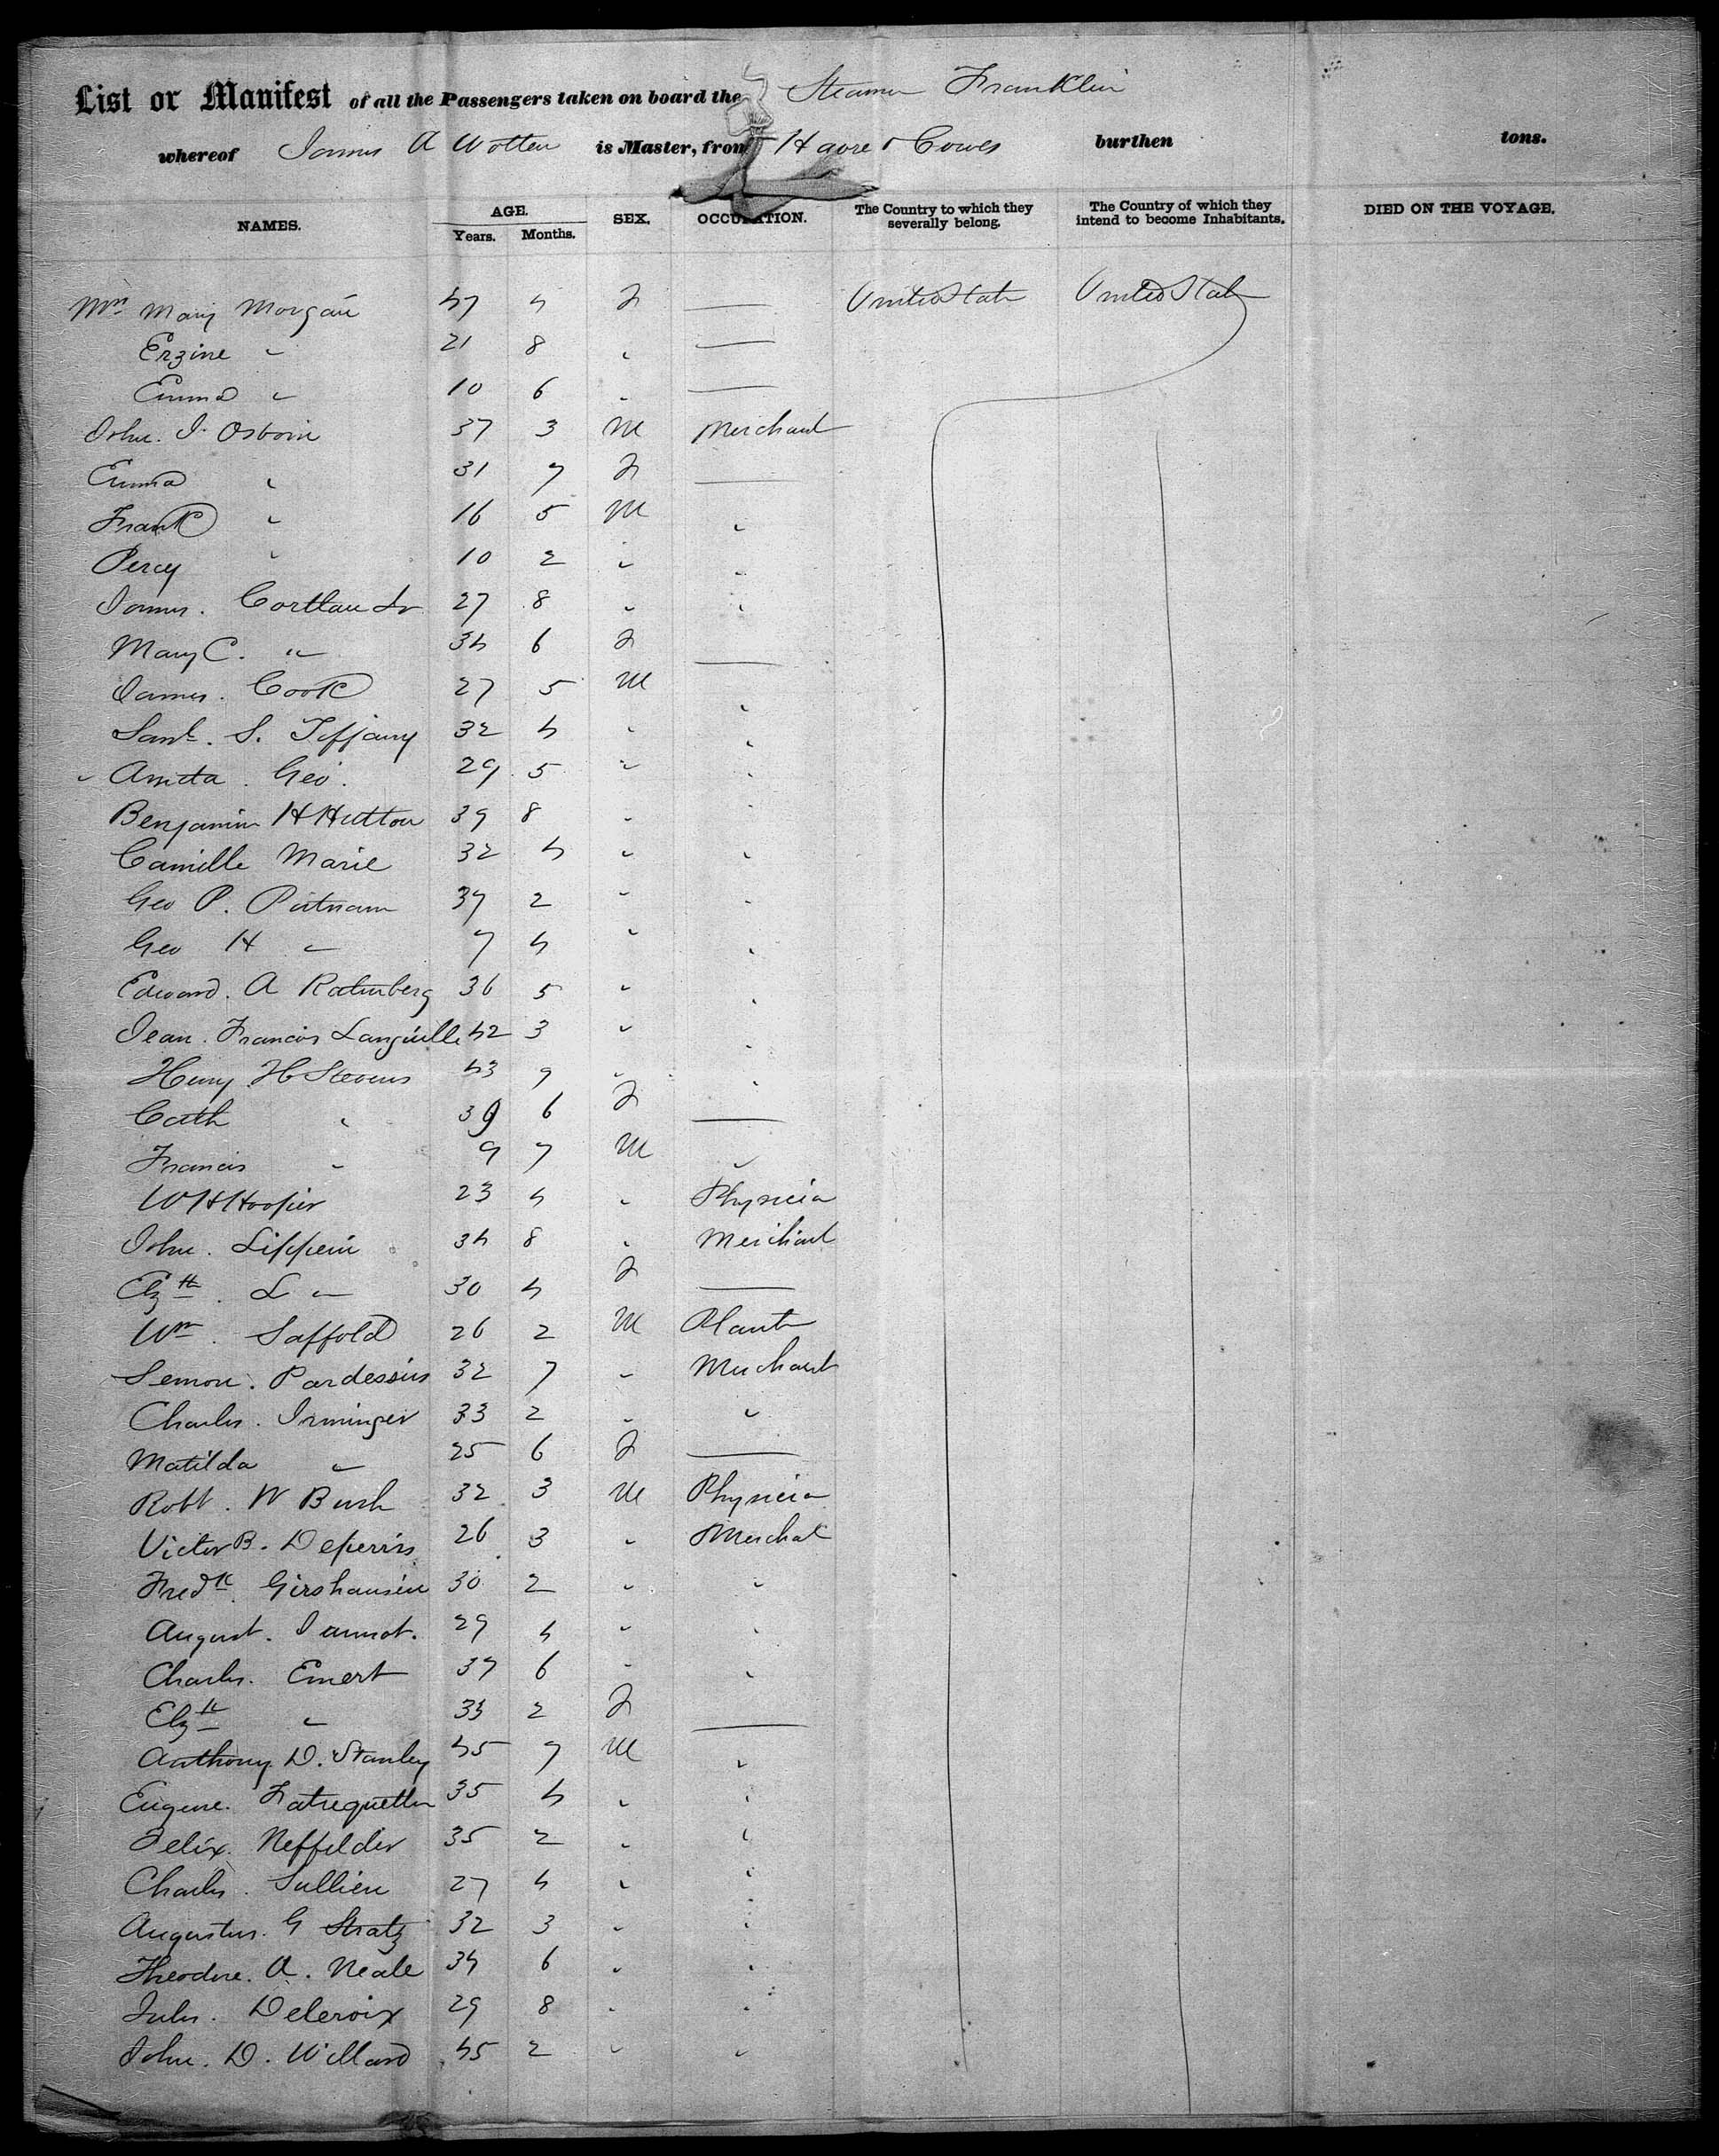 List or Manifest of all the Passengers taken on board the Steamer Franklin
whereof James A Wotten is Master, from Havre & Cowes burthen tons.
NAMES. AGE. Years. Months. SEX. OCCUPATION. The Country to which they severally belong. The Country of which they intend to become Inhabitants. DIED ON THE VOYAGE.
Mrs Mary Morgan 47 4 F — United State United State
Erzine " 21 8 " —
Emma " 10 6 " —
John. I. Osborn 37 3 M Merchant
Emma " 31 7 F —
Frank " 16 5 M "
Percy " 10 2 " "
James. Cortlan Jr 27 8 " "
Mary C. " 34 6 F —
James. Cook 27 5 M "
Saml. S. Tiffany 32 4 " "
" Geo. 29 5 " "
Benjamin H Hutton 39 8 " "
Camille Marie 32 4 " "
Geo P. Putnam 37 2 " "
Geo H " 7 4 " "
Edward. A 36 5 " "
Jean. Francois 42 3 " "
Henry H Stevens 43 9 " "
Cath " 39 6 F —
Francis " 9 7 M "
W H Hooper 23 4 " Physicia
John. Lippein 34 8 " Merchant
Elzth. L " 30 4 F —
Wm. Saffold 26 2 M Plant
Semon. Pardessus 32 7 " Merchant
Charles. Irminger 33 2 " "
Matilda " 25 6 F —
Robt. W Bush 32 3 M Physicia
Victor B. Deperris 26 3 " Merchat
Fredk. Girshausen 30 2 " "
August. 29 4 " "
Charles. Emert 37 6 " "
Elzth " 33 2 F —
Anthony D. Stanley 45 7 M "
Eugene. 35 4 " "
Felix. Neffelder 35 2 " "
Charles. Jullien 27 4 " "
Augustus. G Stratz 32 3 " "
Theodore. A. Neale 34 6 " "
Jules. Delcroix 29 8 " "
John. D. Willard 45 2 " "